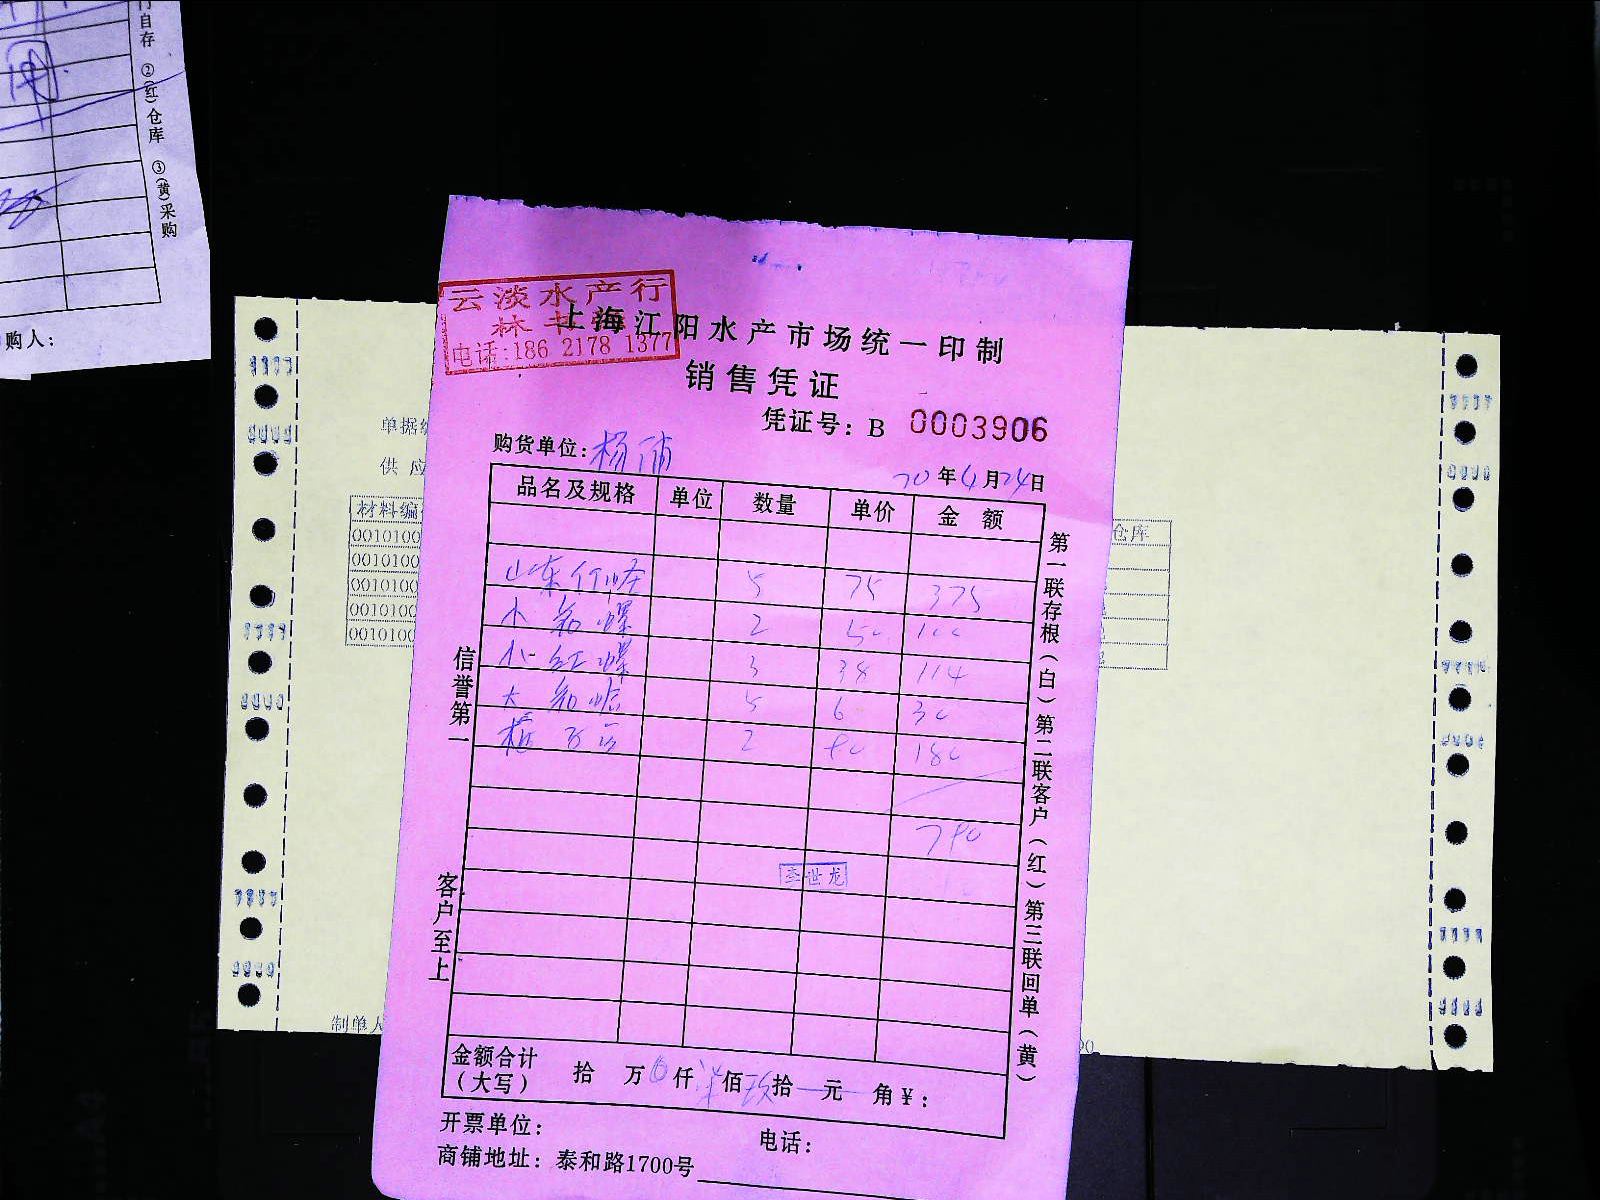 自存 ②(红)仓库 ③(黄)采购
购人：
云淡水产行
电话:186 2178 1377
上海江阳水产市场统一印制
销售凭证
凭证号：B 0003906
购货单位：杨
20年4月24日
品名及规格 单位 数量 单价 金额
山东 5 75 375
小 螺 2 50 100
小红螺 3 38 114
大 5 6 30
2 90 180
790
李世龙
信誉第一
客户至上
第一联存根(白)第二联客户(红)第三联回单(黄)
金额合计(大写) 拾 万 0 仟 柒 佰 玖 拾 元 角¥：
开票单位：
电话：
商铺地址：泰和路1700号
单据
供 应
材料编
仓库
0010100
0010100
0010100
0010100
0010100
制单人